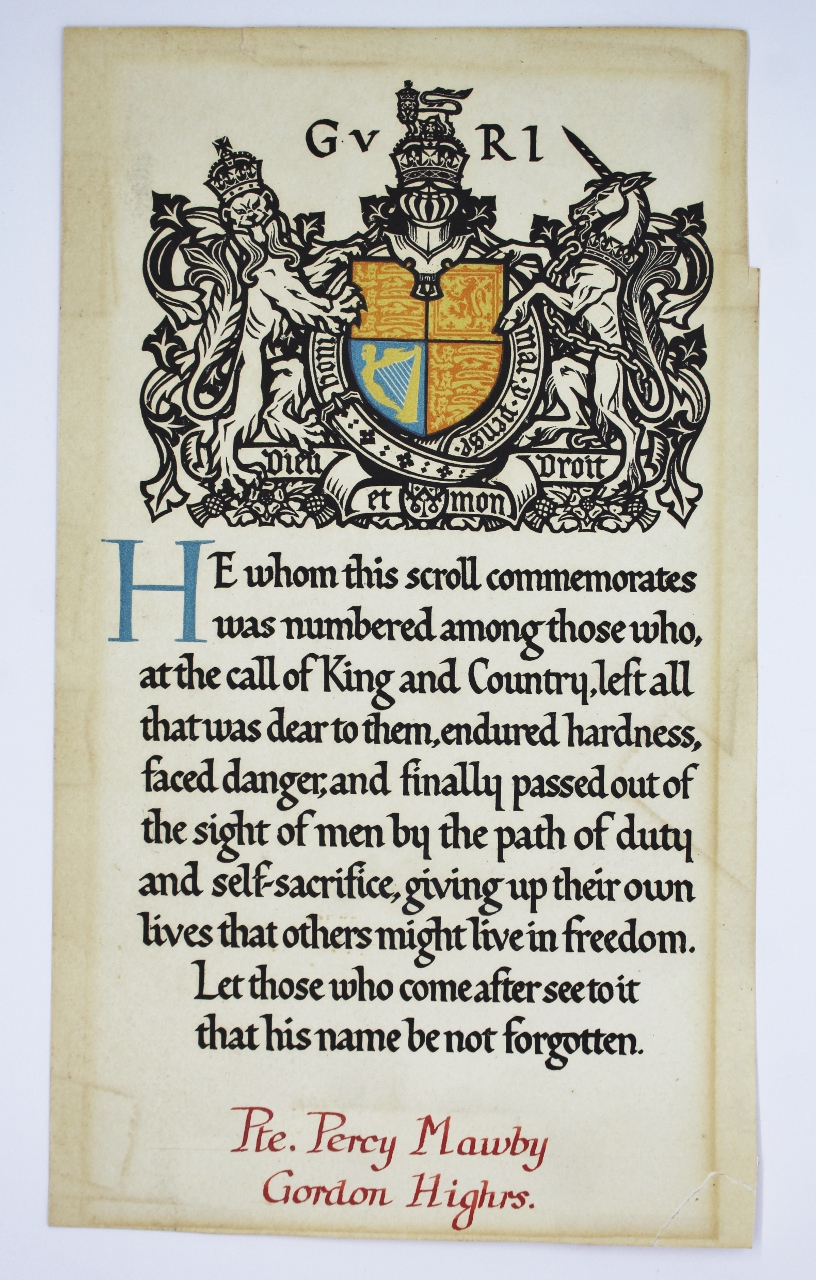 GV RI
soit
mal·y·pense·
Dieu
Droit
et mon
HE whom this scroll commemorates
was numbered among those who,
at the call of King and Country, left all
that was dear to them, endured hardness,
faced danger, and finally passed out of
the sight of men by the path of duty
and self-sacrifice, giving up their own
lives that others might live in freedom.
Let those who come after see to it
that his name be not forgotten.
Pte. Percy Mawby
Gordon Highrs.